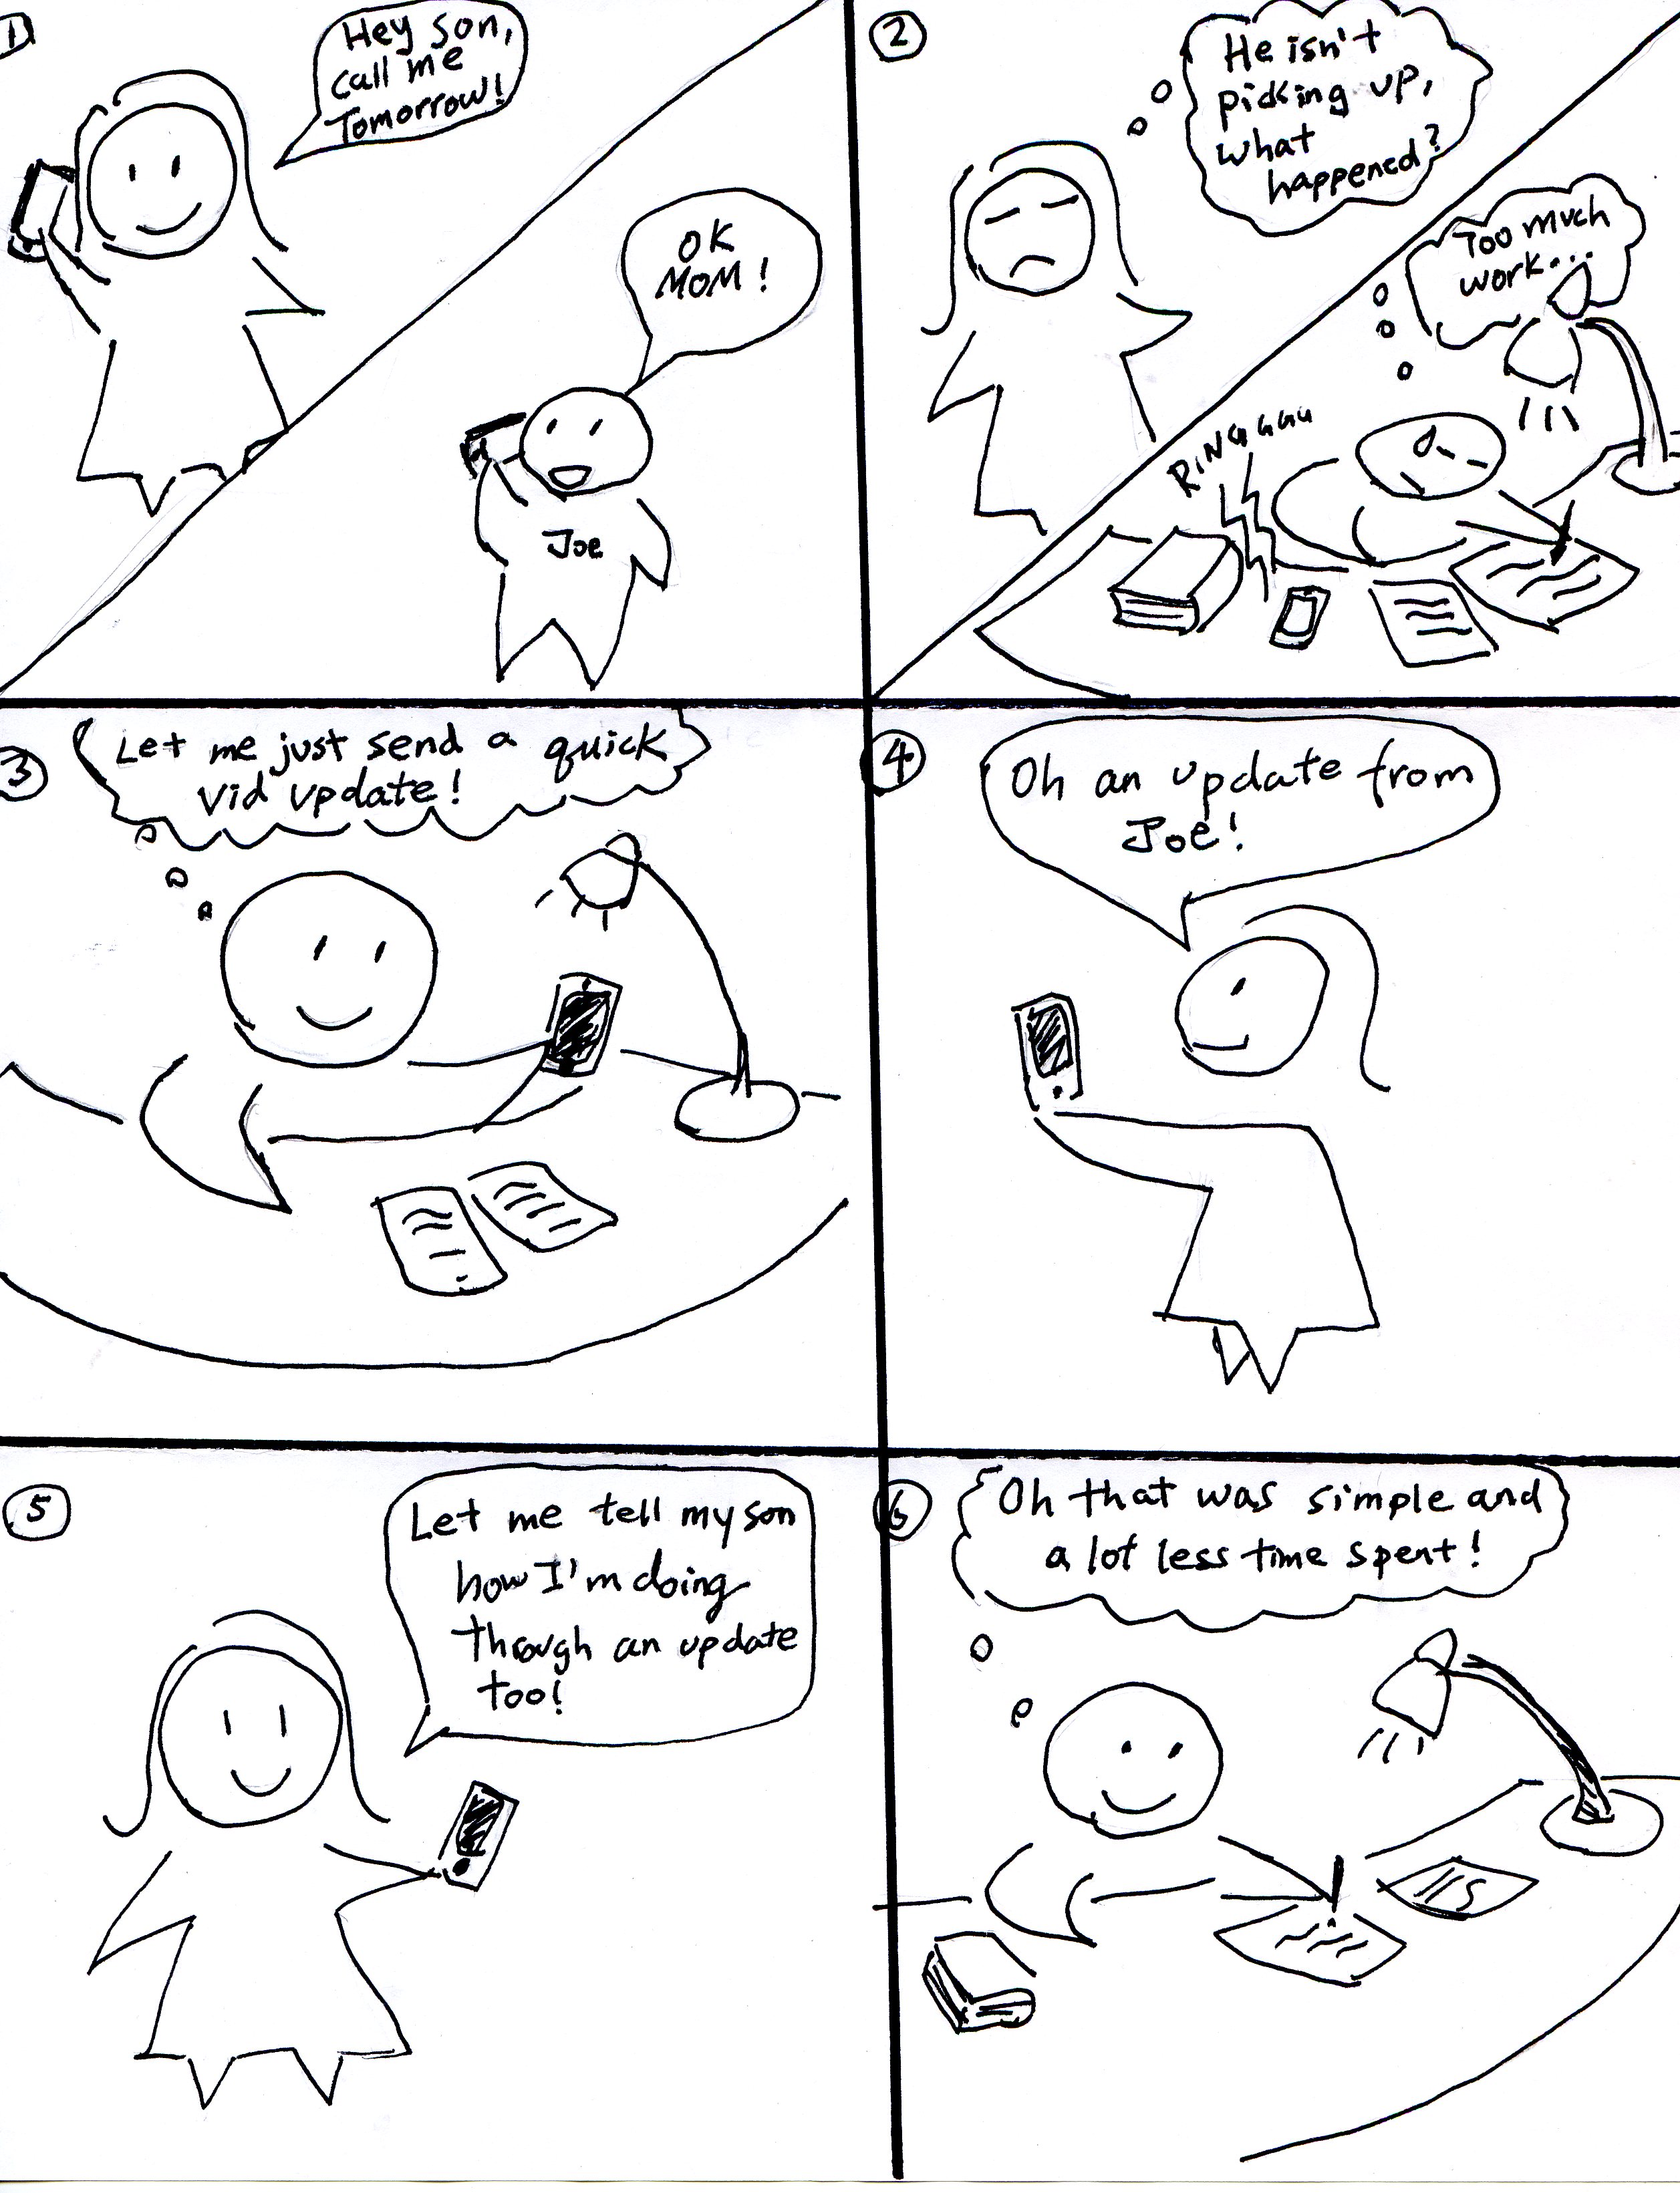 1
Hey son,
call me
Tomorrow!
OK
MOM!
Joe
2
He isn't
picking up,
what
happened?
Too much
work...
RINGGGGG
3
Let me just send a quick
vid update!
4
Oh an update from
Joe!
5
Let me tell my son
how I'm doing
through an update
too!
6
Oh that was simple and
a lot less time spent!